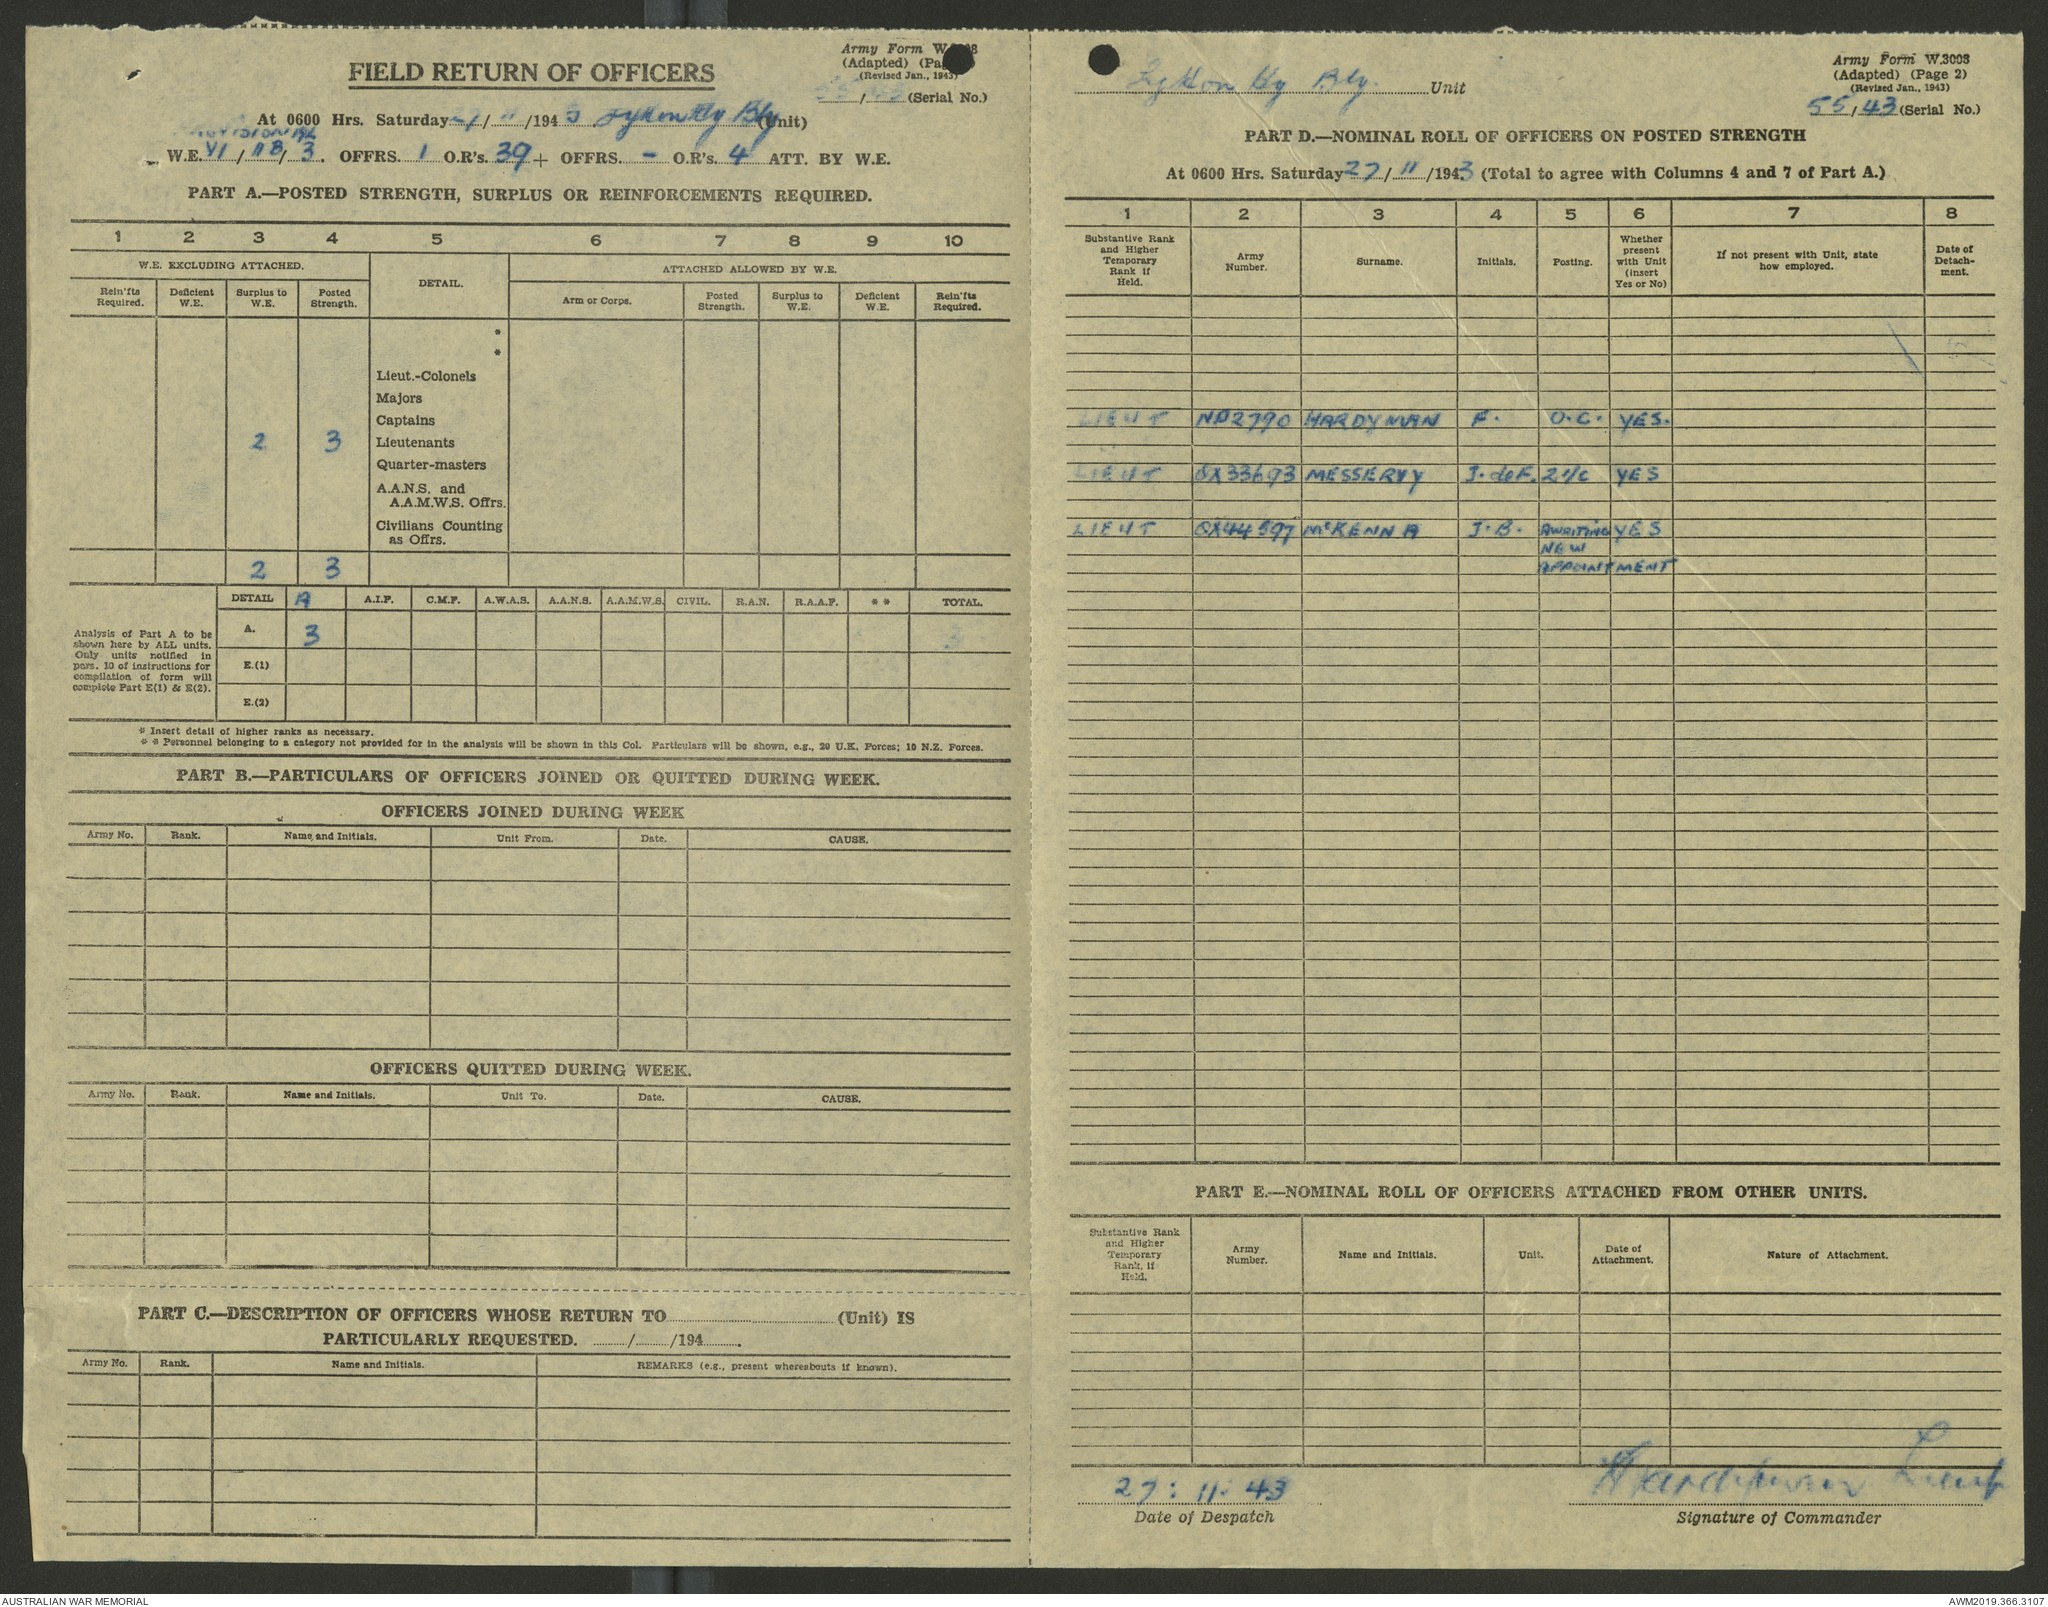 FIELD RETURN OF OFFICERS
Army Form W.3008
(Adapted) (Page
(Revised Jan., 1943)
55/43 (Serial No.)
At 0600 Hrs. Saturday 27/11/1943 Lytton Hy Bty (Unit)
PROVISIONAL
W.E. VI/11B/3. OFFRS. 1 O.R's. 39 + OFFRS. - O.R's. 4 ATT. BY W.E.
PART A.—POSTED STRENGTH, SURPLUS OR REINFORCEMENTS REQUIRED.
1 2 3 4 5 6 7 8 9 10
W.E. EXCLUDING ATTACHED. DETAIL. ATTACHED ALLOWED BY W.E.
Rein'fts Required. Deficient W.E. Surplus to W.E. Posted Strength. Arm or Corps. Posted Strength. Surplus to W.E. Deficient W.E. Rein'fts Required.
*
*
Lieut.-Colonels
Majors
Captains
2 3 Lieutenants
Quarter-masters
A.A.N.S. and
A.A.M.W.S. Offrs.
Civilians Counting
as Offrs.
2 3
DETAIL A A.I.F. C.M.F. A.W.A.S. A.A.N.S. A.A.M.W.S. CIVIL. R.A.N. R.A.A.F. * * TOTAL.
A. 3 3
E.(1)
E.(2)
Analysis of Part A to be
shown here by ALL units.
Only units notified in
para. 10 of instructions for
compilation of form will
complete Part E(1) & E(2).
* Insert detail of higher ranks as necessary.
* * Personnel belonging to a category not provided for in the analysis will be shown in this Col. Particulars will be shown, e.g., 20 U.K. Forces; 10 N.Z. Forces.
PART B.—PARTICULARS OF OFFICERS JOINED OR QUITTED DURING WEEK.
OFFICERS JOINED DURING WEEK
Army No. Rank. Name and Initials. Unit From. Date. CAUSE.
OFFICERS QUITTED DURING WEEK.
Army No. Rank. Name and Initials. Unit To. Date. CAUSE.
PART C.—DESCRIPTION OF OFFICERS WHOSE RETURN TO (Unit) IS
PARTICULARLY REQUESTED. / /194 .
Army No. Rank. Name and Initials. REMARKS (e.g., present whereabouts if known).
Lytton Hy Bty. Unit
Army Form W.3008
(Adapted) (Page 2)
(Revised Jan., 1943)
55/43 (Serial No.)
PART D.—NOMINAL ROLL OF OFFICERS ON POSTED STRENGTH
At 0600 Hrs. Saturday 27/11/1943 (Total to agree with Columns 4 and 7 of Part A.)
1 2 3 4 5 6 7 8
Substantive Rank and Higher Temporary Rank if Held. Army Number. Surname. Initials. Posting. Whether present with Unit (insert Yes or No) If not present with Unit, state how employed. Date of Detach-ment.
LIEUT NP2790 HARDYMAN F. O.C. YES.
LIEUT QX33693 MESSERVY J. deF. 2 i/c YES
LIEUT QX44597 McKENNA J.B. AWAITING YES
NEW
APPOINTMENT
PART E.—NOMINAL ROLL OF OFFICERS ATTACHED FROM OTHER UNITS.
Substantive Rank and Higher Temporary Rank, if Held. Army Number. Name and Initials. Unit. Date of Attachment. Nature of Attachment.
27:11:43
Date of Despatch
F Hardyman Lieut
Signature of Commander
AUSTRALIAN WAR MEMORIAL
AWM2019.366.3107